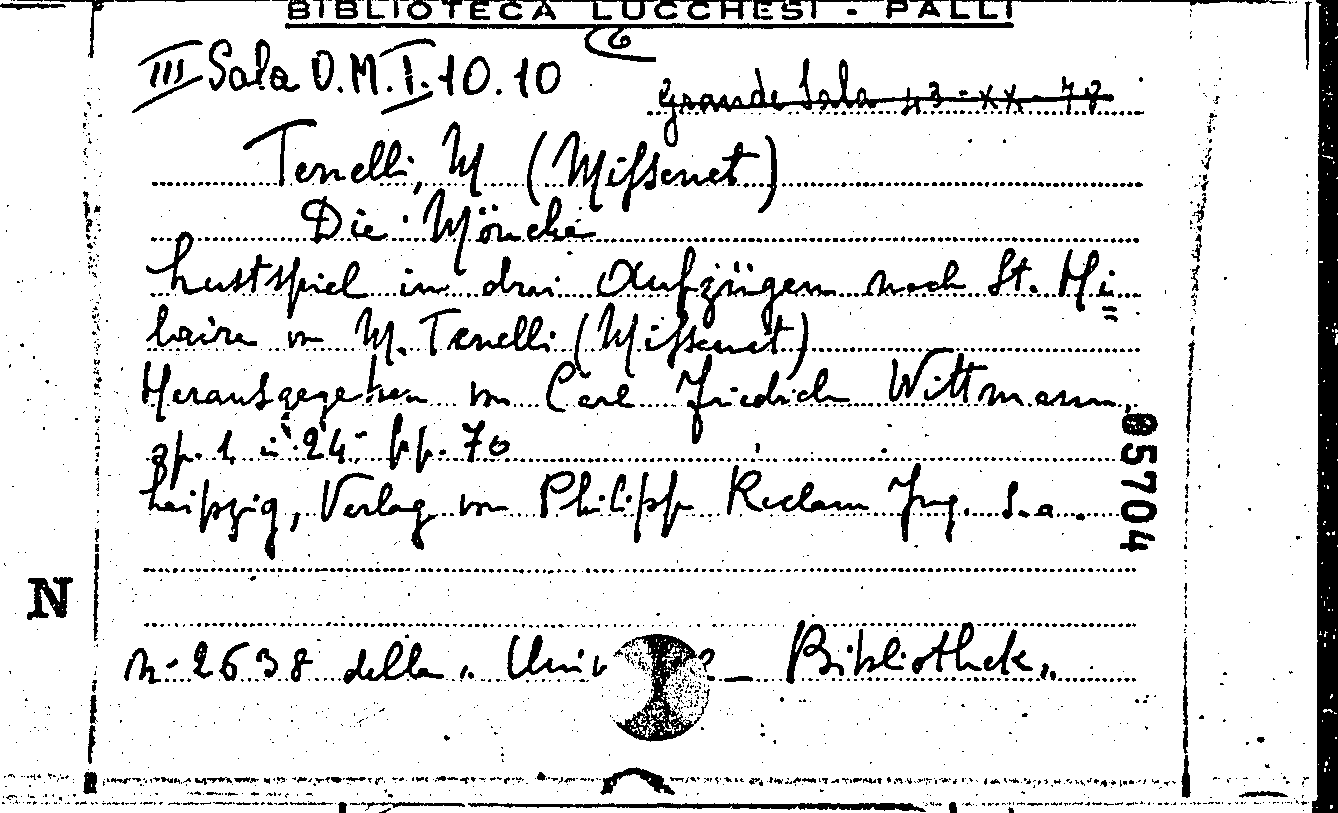 BIBLIOTECA LUCCHESI - PALLI
III Sala O.M.I.10.10
Grande Sala 43-XX-78
Tenelli, M (Missenet)
Die Mönche
Lustspiel in drei Aufzügen nach St. Hi=
laire von M. Tenelli (Missenet)
Herausgegeben von Carl Friedrich Wittmann.
gp. 1 in 24- pp. 70
Leipzig, Verlag von Philipp Reclam Jug. S.a.
05704
N
n. 2638 della "Univ Bibliothek"